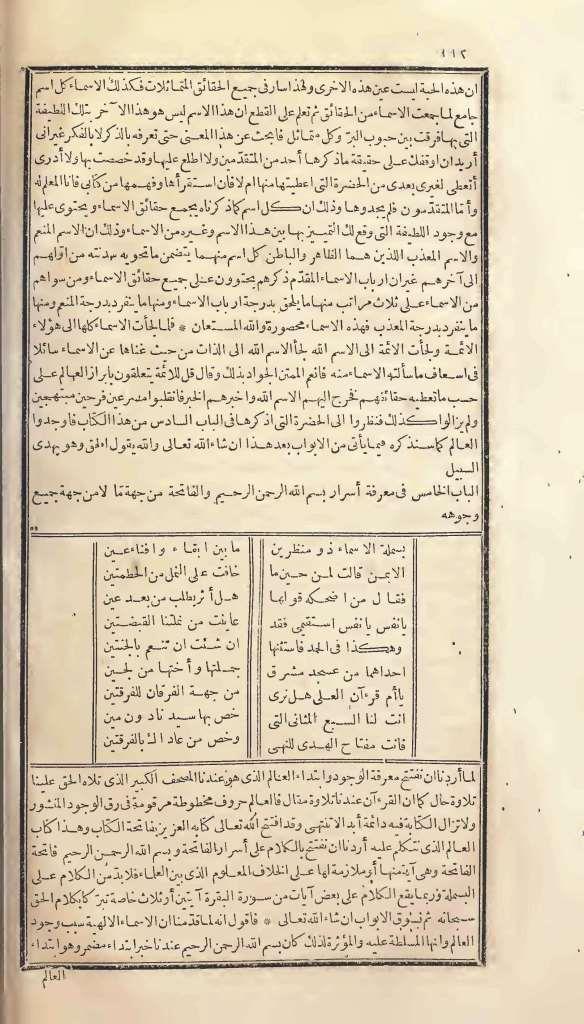 ١١٢
ان هذه الحبة ليست عين هذه الاخرى وهذا سار فى جميع الحقائق المتماثلات فكذلك الاسماء كل اسم
جامع لما جمعت الاسماء من الحقائق ثم تعلم على القطع ان هذا الاسم ليس هو هذا الآخر بتلك اللطيفة
التى بها فرقت بين حبوب البرّ وكل متماثل فابحث عن هذا المعنى حتى تعرفه بالذكر لا بالفكر غيرانى
أريد ان اوقفك على حقيقة ما ذكرها أحد من المتقدّمين ولا اطلع عليها وقد خصصت بها ولا أدرى
أتعطى لغيرى بعدى من الحضرة التى اعطيتها منها ام لا فان استقرأها وفهمها من كتابى فانا المعلم له
وأما المتقدّمون فلم يجدوها وذلك ان كل اسم كما ذكرناه يجمع حقائق الاسماء ويحتوى عليها
مع وجود اللطيفة التى وقع لك التمييز بها بين هذا الاسم وغيره من الاسماء وذلك ان الاسم المنعم
والاسم المعذب اللذين هما الظاهر والباطن كل اسم منهما يتضمن ما تحويه سدنته من اوّلهم
الى آخرهم غيران ارباب الاسماء المقدّم ذكرهم يحتوون على جميع حقائق الاسماء ومن سواهم
من الاسماء على ثلاث مراتب منها ما يلحق بدرجة ارباب الاسماء ومنها ما ينفرد بدرجة المنعم ومنها
ما ينفرد بدرجة المعذب فهذه الاسماء محصورة والله المستعان * فلما لجأت الاسماء كلها الى هؤلاء
الائمة ولجأت الائمة الى الاسم الله لجأ الاسم الله الى الذات من حيث غناها عن الاسماء سائلا
فى اسعاف ما سألته الاسماء منه فانعم المحسن الجواد بذلك وقال قل للائمة يتعلقون بابراز العالم على
حسب ما تعطيه حقائقهم فخرج اليهم الاسم الله واخبرهم الخبر فانقلبوا مسرعين فرحين مبتهجين
ولم يزالوا كذلك فنظروا الى الحضرة التى اذكرها فى الباب السادس من هذا الكتاب فاوجدوا
العالم كما سنذكره فيما يأتى من الابواب بعد هذا ان شاء الله تعالى والله يقول الحق وهو يهدى
السبيل
الباب الخامس فى معرفة أسرار بسم الله الرحمن الرحيم والفاتحة من جهة مّا لا من جهة جميع
وجوهه
بسملة الاسماء ذو منظرين ما بين ابقاء وافناء عين
الا بمن قالت لمن حين ما خافت على النمل من الحطمتين
فقال من اضحكه قولها هل أثر يطلب من بعد عين
يا نفس يا نفس استقيمى فقد عاينت من نملتنا القبضتين
وهكذا فى الحمد فاستثنها ان شئت ان تنعم بالجنتين
احداهما من عسجد مشرق جملتها وأختها من لجين
يا أم قرءآن العلى هل نرى من جهة الفرقان للفرقتين
انت لنا السبع المثانى التى خص بها سيدنا دون مين
فانت مفتاح الهدى للنهى وخص من عاداك بالفرقتين
لما أردنا ان نفتتح معرفة الوجود وابتداء العالم الذى هو عندنا المصحف الكبير الذى تلاه الحق علينا
تلاوة حال كما ان القرءآن عندنا تلاوة مقال فالعالم حروف مخطوطة مرقومة فى رق الوجود المنشور
ولا تزال الكتابة فيه دائمة أبدا لا تنتهى وقد افتتح الله تعالى كتابه العزيز بفاتحة الكتاب وهذا كتاب
العالم الذى نتكلم عليه أردنا ان نفتتح بالكلام على أسرار الفاتحة وبسم الله الرحمن الرحيم فاتحة
الفاتحة وهى آية منها أو ملازمة لها على الخلاف المعلوم الذى بين العلماء فلا بدّ من الكلام على
البسملة وربما يقع الكلام على بعض آيات من سورة البقرة آيتين أو ثلاث خاصة تبرّكا بكلام الحق
سبحانه ثم نسوق الابواب ان شاء الله تعالى * فاقول انه لما قدّمنا ان الاسماء الالهية سبب وجود
العالم وانها المسلطة عليه والمؤثرة لذلك كان بسم الله الرحمن الرحيم عندنا خبر ابتداء مضمر وهو ابتداء
العالم